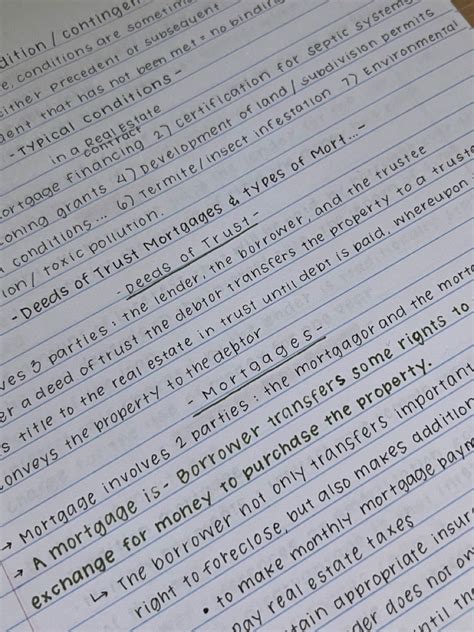 dition / contingen
e, conditions are sometim
either precedent or subsequent
dent that has not been met = no bindin
- Typical conditions -
in a Real Estate
contract
ortgage financing 2) Certification for septic systems
oning grants 4) Development of land / subdivision permits
conditions... 6) Termite / insect infestation 7) Environmental
ion / toxic pollution.
- Deeds of Trust Mortgages & types of Mort...-
- Deeds of Trust -
ves 3 parties: the lender, the borrower, and the trustee
er a deed of trust the debtor transfers the property to a truste
s title to the real estate in trust until debt is paid, whereupon
conveys the property to the debtor
- Mortgages -
→ Mortgage involves 2 parties: the mortgagor and the mort
→ A mortgage is - Borrower transfers some rights to
exchange for money to purchase the property.
↳ The borrower not only transfers important
right to foreclose, but also makes addition
• to make monthly mortgage paym
pay real estate taxes
tain appropriate insu
der does not
until the